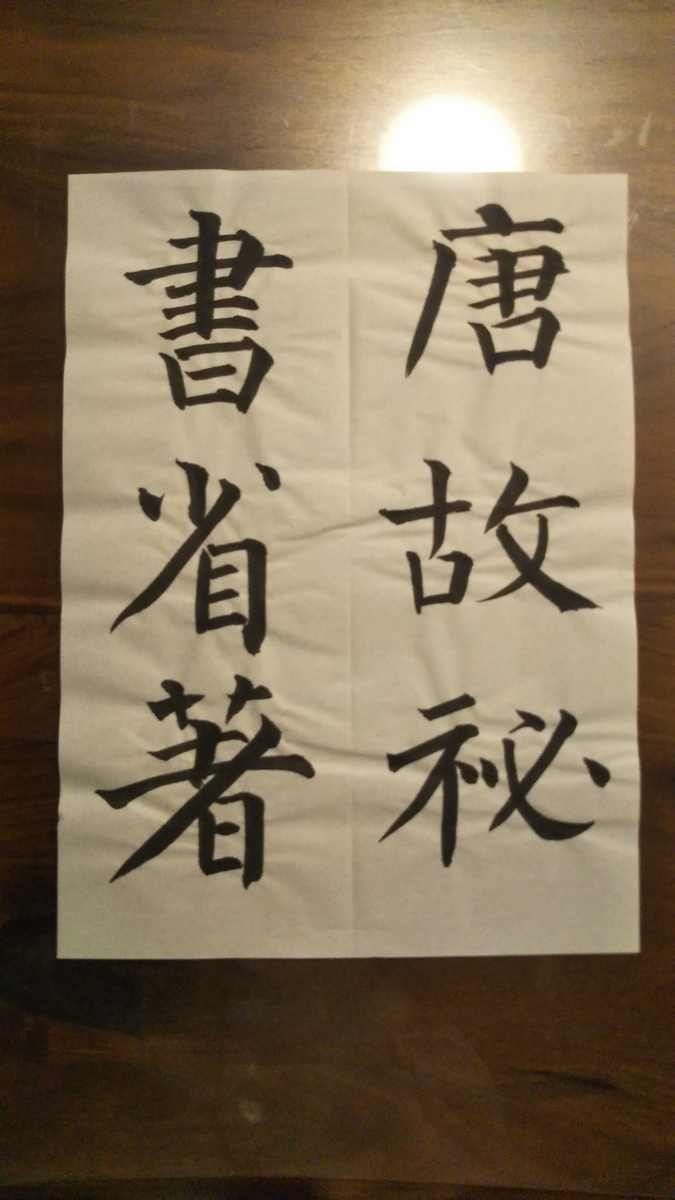 唐故祕
書省著